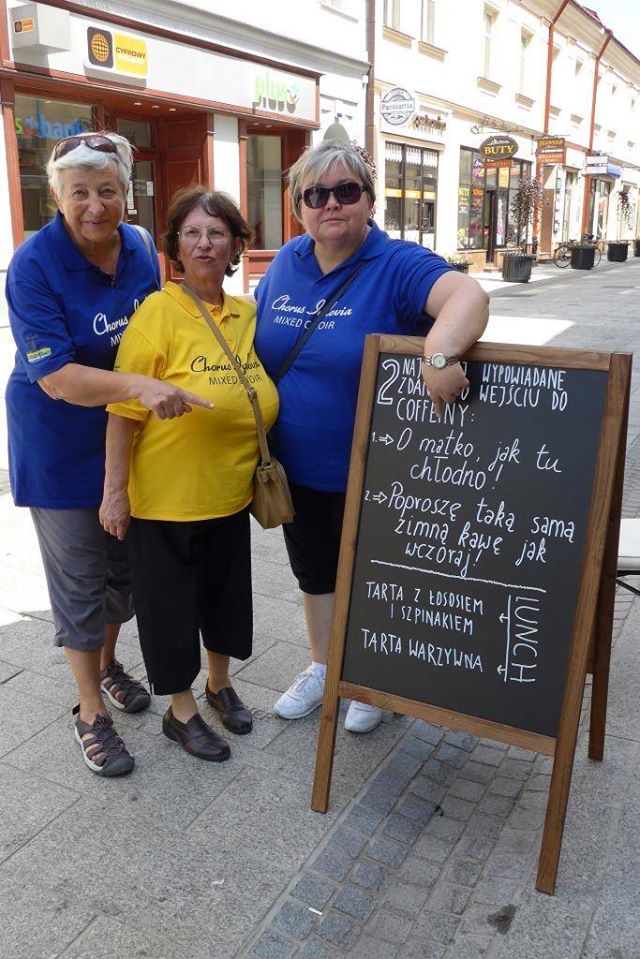 CYFROWY
plus
plus
bank
Pączkarnia
BUTY
Chorus
MIXED CHOIR
Chorus
MIXED CHOIR
Chorus
MIXED CHOIR
2 WYPOWIADANE
WEJŚCIU DO
COFFEINY:
1. ⇒ O matko, jak tu
chłodno!
2. ⇒ Poproszę taką samą
zimną kawę jak
wczoraj!
TARTA Z ŁOSOSIEM
I SZPINAKIEM
TARTA WARZYWNA
LUNCH